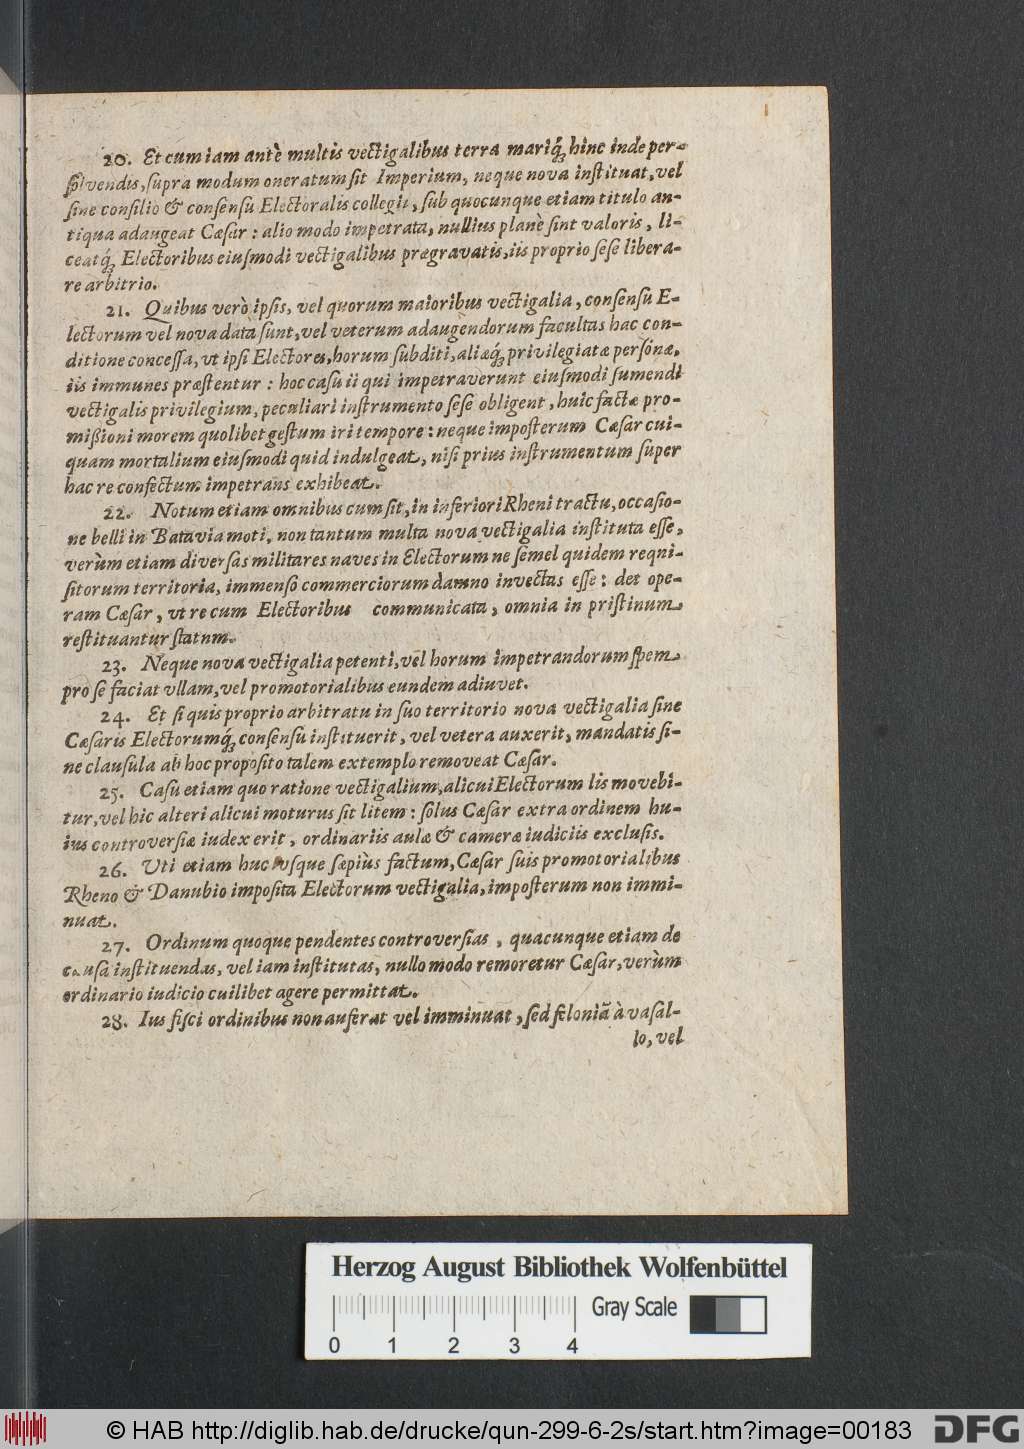 20. Et cum iam antè multis vectigalibus terra mariq́; hinc inde per-
solvendis, supra modum oneratum sit Imperium, neque nova instituat, vel
sine consilio & consensu Electoralis collegii, sub quocunque etiam titulo an-
tiqua adaugeat Cæsar: alio modo impetrata, nullius planè sint valoris, li-
ceatq́; Electoribus eiusmodi vectigalibus prægravatis, iis proprio sese libera-
re arbitrio.
21. Quibus verò ipsis, vel quorum maioribus vectigalia, consensu E-
lectorum vel nova data sunt, vel veterum adaugendorum facultas hac con-
ditione concessa, ut ipsi Electores, horum subditi, aliæq́; privilegiatæ personæ,
iis immunes præstentur: hoc casu ii qui impetraverunt eiusmodi sumendi
vectigalis privilegium, peculiari instrumento sese obligent, huic factæ pro-
mißioni morem quolibet gestum iri tempore: neque imposterum Cæsar cui-
quam mortalium eiusmodi quid indulgeat, nisi prius instrumentum super
hac re confectum impetrans exhibeat.
22. Notum etiam omnibus cum sit, in inferiori Rheni tractu, occasio-
ne belli in Batavia moti, non tantum multa nova vectigalia instituta esse,
verùm etiam diversas militares naves in Electorum ne semel quidem requi-
sitorum territoria, immenso commerciorum damno invectas esse: det ope-
ram Cæsar, vt re cum Electoribus communicata, omnia in pristinum
restituantur statum.
23. Neque nova vectigalia petenti, vel horum impetrandorum spem
pro se faciat vllam, vel promotorialibus eundem adiuvet.
24. Et si quis proprio arbitratu in suo territorio nova vectigalia sine
Cæsaris Electorumq́; consensu instituerit, vel vetera auxerit, mandatis si-
ne clausula ab hoc proposito talem extemplo removeat Cæsar.
25. Casu etiam quo ratione vectigalium, alicui Electorum lis movebi-
tur, vel hic alteri alicui moturus sit litem: solus Cæsar extra ordinem hu-
ius controversiæ iudex erit, ordinariis aulæ & cameræ iudiciis exclusis.
26. Uti etiam huc vsque sæpiùs factum, Cæsar suis promotorialibus
Rheno & Danubio imposita Electorum vectigalia, imposterum non immi-
nuat.
27. Ordinum quoque pendentes controversias, quacunque etiam de
causa instituendas, vel iam institutas, nullo modo remoretur Cæsar, verùm
ordinario iudicio cuilibet agere permittat.
28. Ius fisci ordinibus non auferat vel imminuat, sed feloniã à vasal-
lo, vel
Herzog August Bibliothek Wolfenbüttel
Gray Scale
0 1 2 3 4
© HAB http://diglib.hab.de/drucke/qun-299-6-2s/start.htm?image=00183
DFG